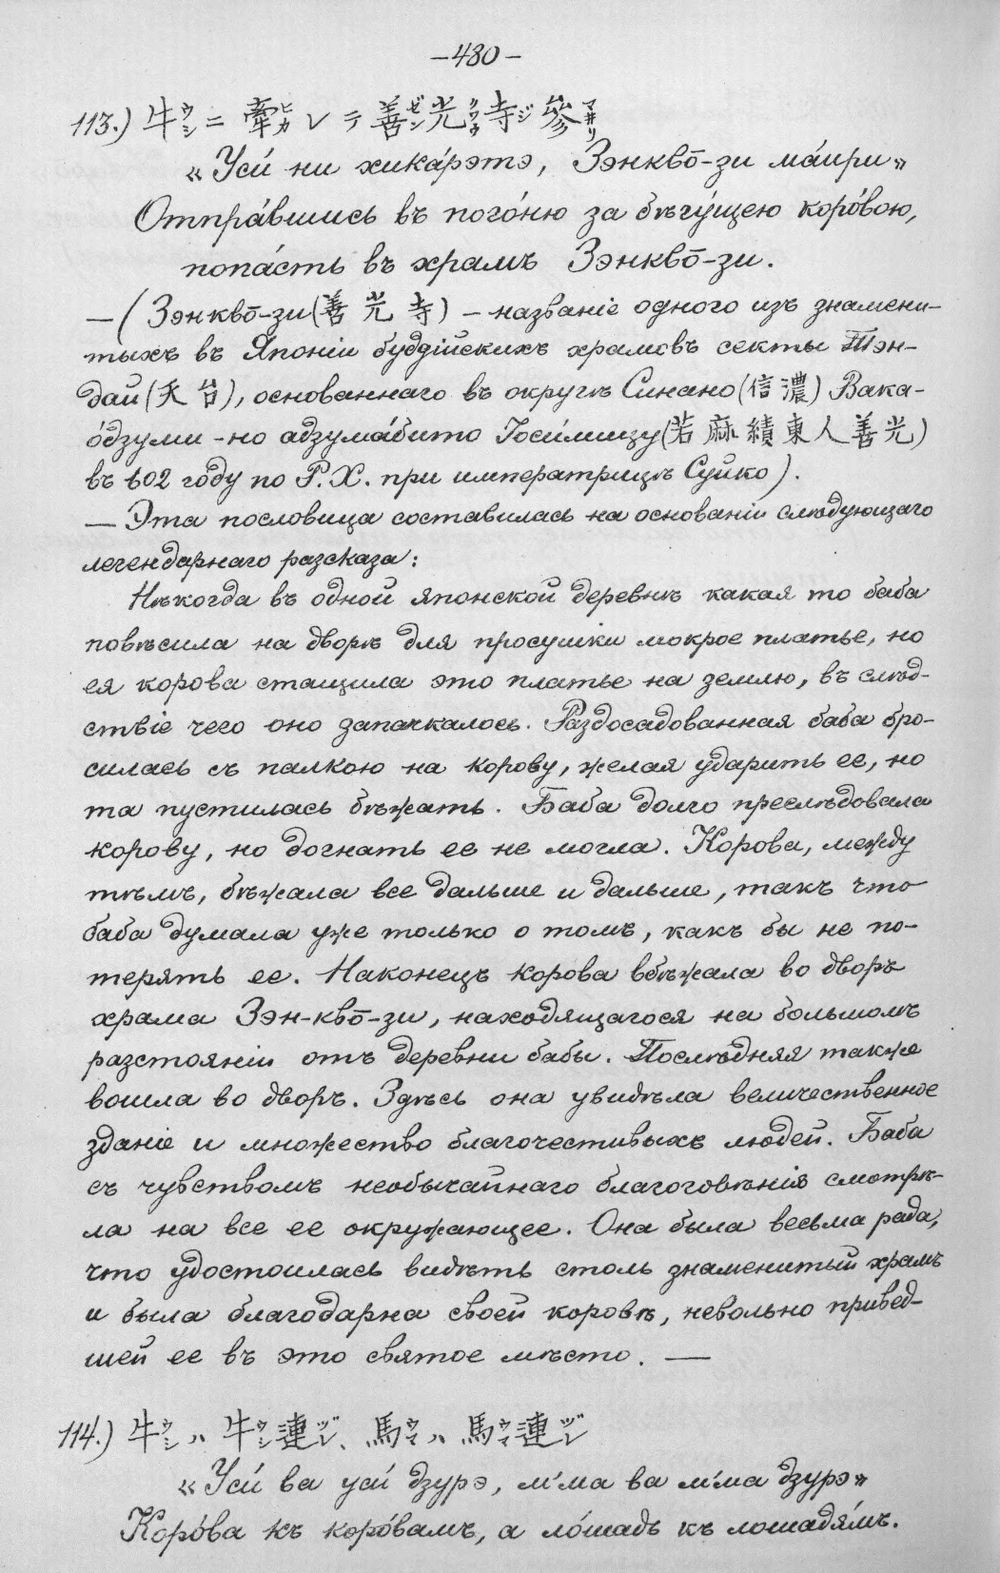 —480—
113.) 牛ウシニ 牽ヒカレテ 善ゼン光クワウ寺ジ 參マヰリ
«Уси́ ни хика́рэтэ, Зэнквō-зи ма́ири»
Отпра́вшись въ пого́ню за бѣгу́щею коро́вою,
попа́сть въ храмъ Зэнквō-зи.
—(Зэнквō-зи (善光寺) — названіе одного изъ знамени-
тыхъ въ Японіи буддійскихъ храмовъ секты Тэн-
дай (天台), основаннаго въ округѣ Синано (信濃) Вака-
о́дзуми-но адзума́бито Іоси́мицу (若麻績東人善光)
въ 602 году по Р. Х. при императрицѣ Суйко).
— Эта пословица составилась на основаніи слѣдующаго
легендарнаго разсказа:
Нѣкогда въ одной японской деревнѣ какая то баба
повѣсила на дворѣ для просушки мокрое платье, но
ея корова стащила это платье на землю, въ слѣд-
ствіе чего оно запачкалось. Раздосадованная баба бро-
силась съ палкою на корову, желая ударить ее, но
та пустилась бѣжать. Баба долго преслѣдовала
корову, но догнать ее не могла. Корова, между
тѣмъ, бѣжала все дальше и дальше, такъ что
баба думала уже только о томъ, какъ бы не по-
терять ее. Наконецъ корова вбѣжала во дворъ
храма Зэн-квō-зи, находящагося на большомъ
разстояніи отъ деревни бабы. Послѣдняя также
вошла во дворъ. Здѣсь она увидѣла величественное
зданіе и множество благочестивыхъ людей. Баба
съ чувствомъ необычайнаго благоговѣнія смотрѣ-
ла на все ее окружающее. Она была весьма рада,
что удостоилась видѣть столь знаменитый храмъ
и была благодарна своей коровѣ, невольно привед-
шей ее въ это святое мѣсто. —
114.) 牛ウシハ 牛ウシ連ヅレ、馬ウマハ 馬ウマ連ヅレ
«Уси́ ва уси́ дзурэ, м'ма ва м'ма дзурэ»
Коро́ва къ коро́вамъ, а ло́шадь къ лошадя́мъ.